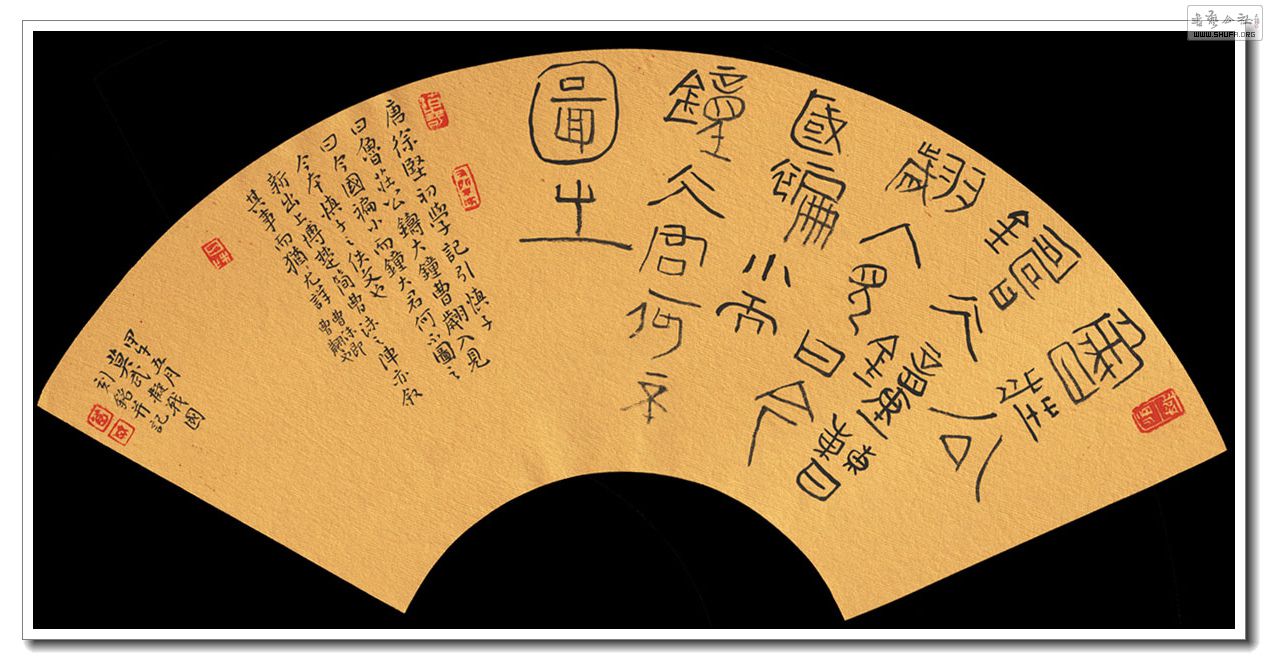 魯莊公
鑄大鐘曹
翽入見曰今
國褊小而
鐘大君何不
圖之
唐徐堅初學記引慎子
曰魯莊公鑄大鐘曹翽入見
曰今國褊小而鐘大君何不圖之
今本慎子之佚文也
新出上博楚簡曹沫之陣亦叙
其事而猶尤詳
曹沫即曹翽也
甲午五月戰國
銘并記
書藝公社
WWW.SHUFA.ORG